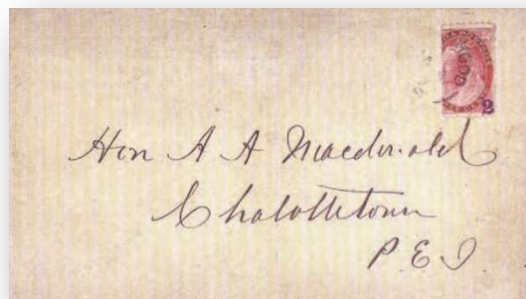 Hon A A Macdonald
Chalottetown
P E I
2